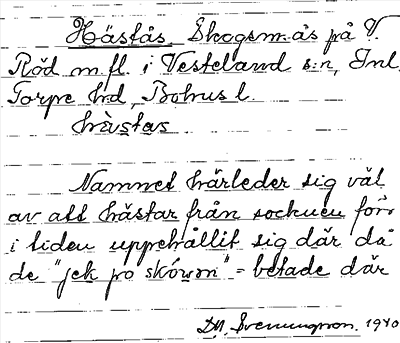 Hästås Skogsm.ås på V.
Röd m.fl. i Vesteland s:n, Inl.
Torpe hd, Bohus l.
hästås
Namnet härleder sig väl
av att hästar från socknen förr
i tiden uppehållit sig där då
de "jek po skówn" = betade där
D.A. Svenungsson. 1940